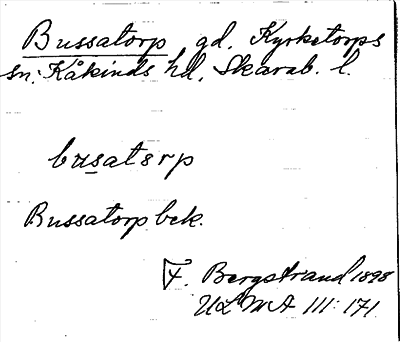 Bussatorp gd. Kyrketorps
sn. Kåkinds hd, Skarab. l.
busatɛrp
Bussatorp bek.
F. Bergstrand 1898
ULMA 111:171